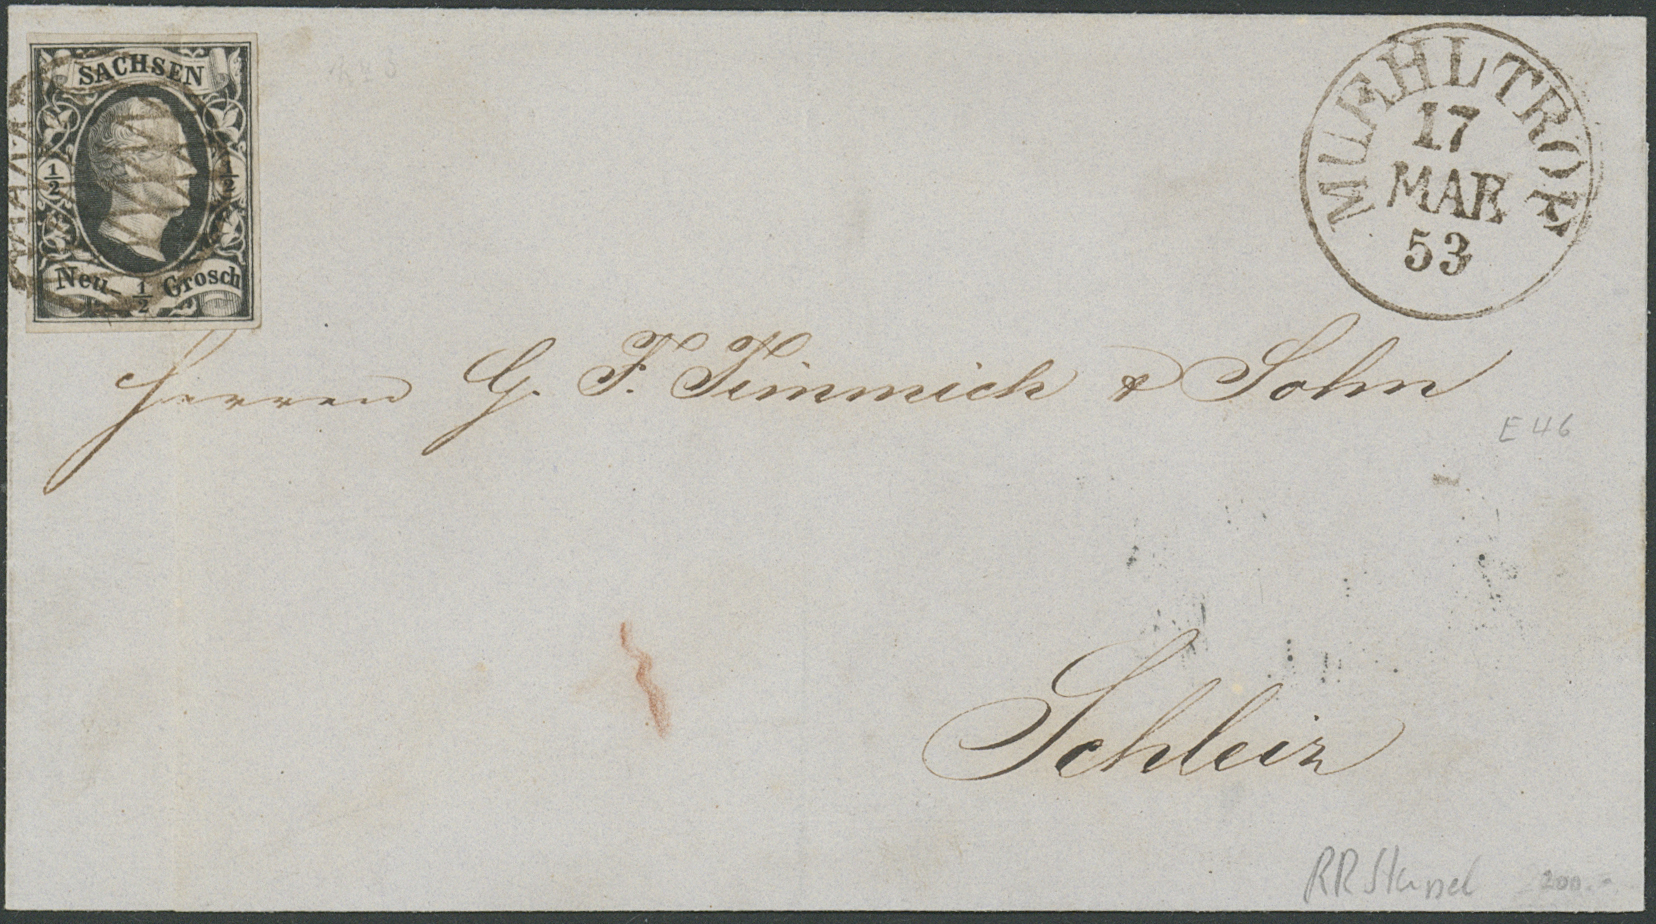 SACHSEN
1/2 1/2
Neu- 1/2 Grosch
MUEHLTROF
17
MAR
53
Herren G. F. Kimmich & Sohn
E 46
Schleiz
RR Stempel 200.-